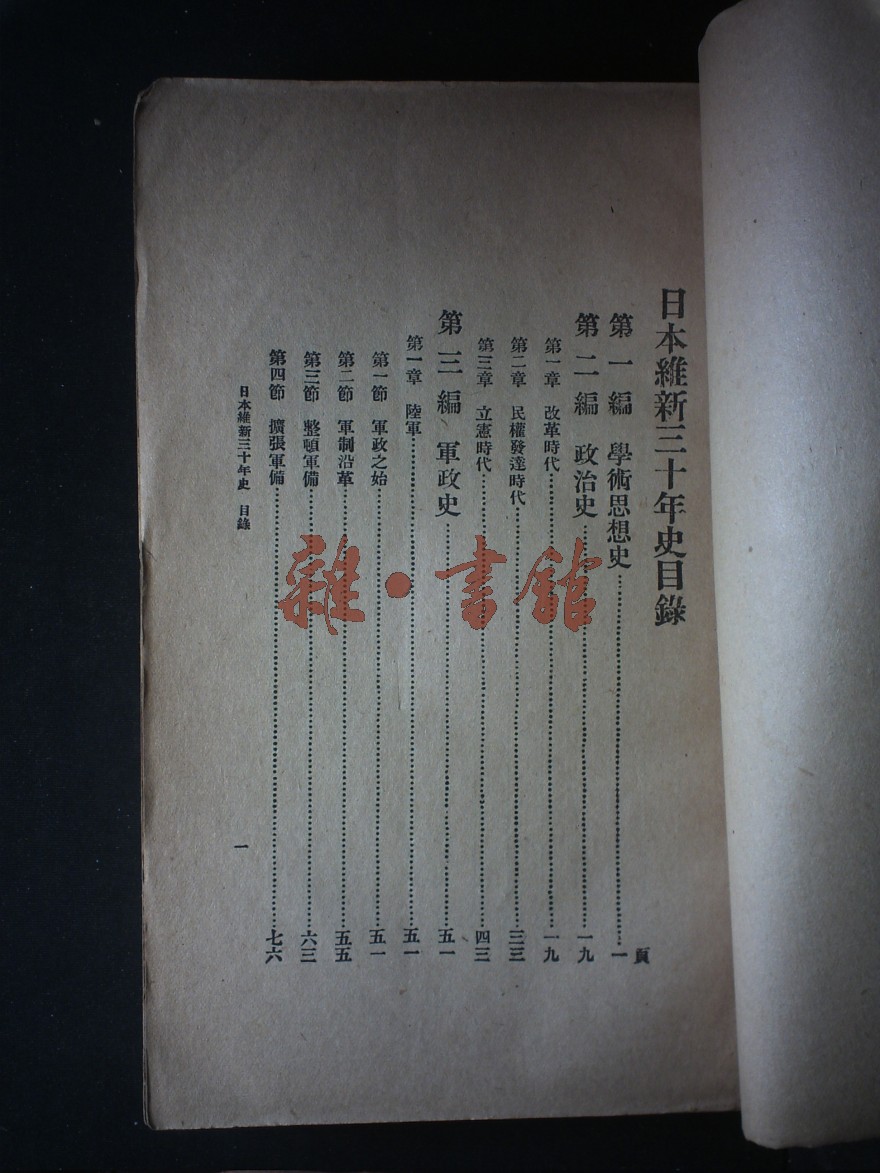 日本維新三十年史目錄
頁
第一編 學術思想史……一
第二編 政治史……一九
第一章 改革時代……一九
第二章 民權發達時代……三三
第三章 立憲時代……四三
第三編 軍政史……五一
第一章 陸軍……五一
第一節 軍政之始……五一
第二節 軍制沿革……五五
第三節 整頓軍備……六三
第四節 擴張軍備……七六
日本維新三十年史 目錄 一
雜·書館